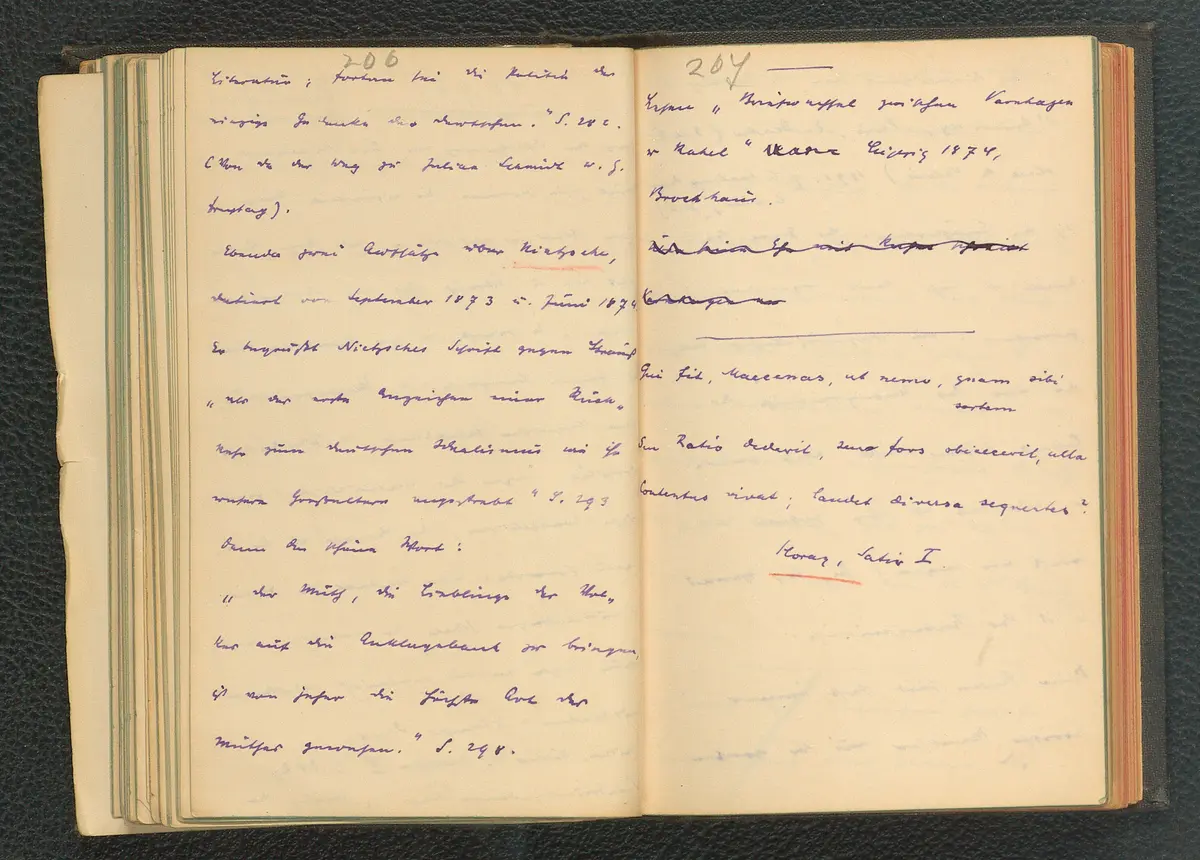 206
Literatur; fortan sei die Politik der
einzige Gedanke des Deutschen." S. 282.
(Von da der Weg zu Julian Schmidt u. G.
Freytag).
Ebenda zwei Aufsätze über Nietzsche,
datiert von September 1873 u. Juni 1874
Er begrüßt Nietzsches Schrift gegen Strauß
„als das erste Anzeichen einer Rück„
kehr zum deutschen Idealismus wie ihn
unsere Großeltern angestrebt" S. 293
Dann das schöne Wort:
„der Muth, die Lieblinge der Völ„
ker auf die Anklagebank zu bringen,
ist von jeher die höchste Art des
Muthes gewesen." S. 298.
207
Lesen „Briefwechsel zwischen Varnhagen
u Rahel" Leipzig 1874,
Brockhaus.
Qui fit, Maecenas, ut nemo, quam sibi
sortem
Seu Ratio dederit, seu fors obiecerit, illa
Contentus vivat; laudet diversa sequentes?
Horaz, Satir I.